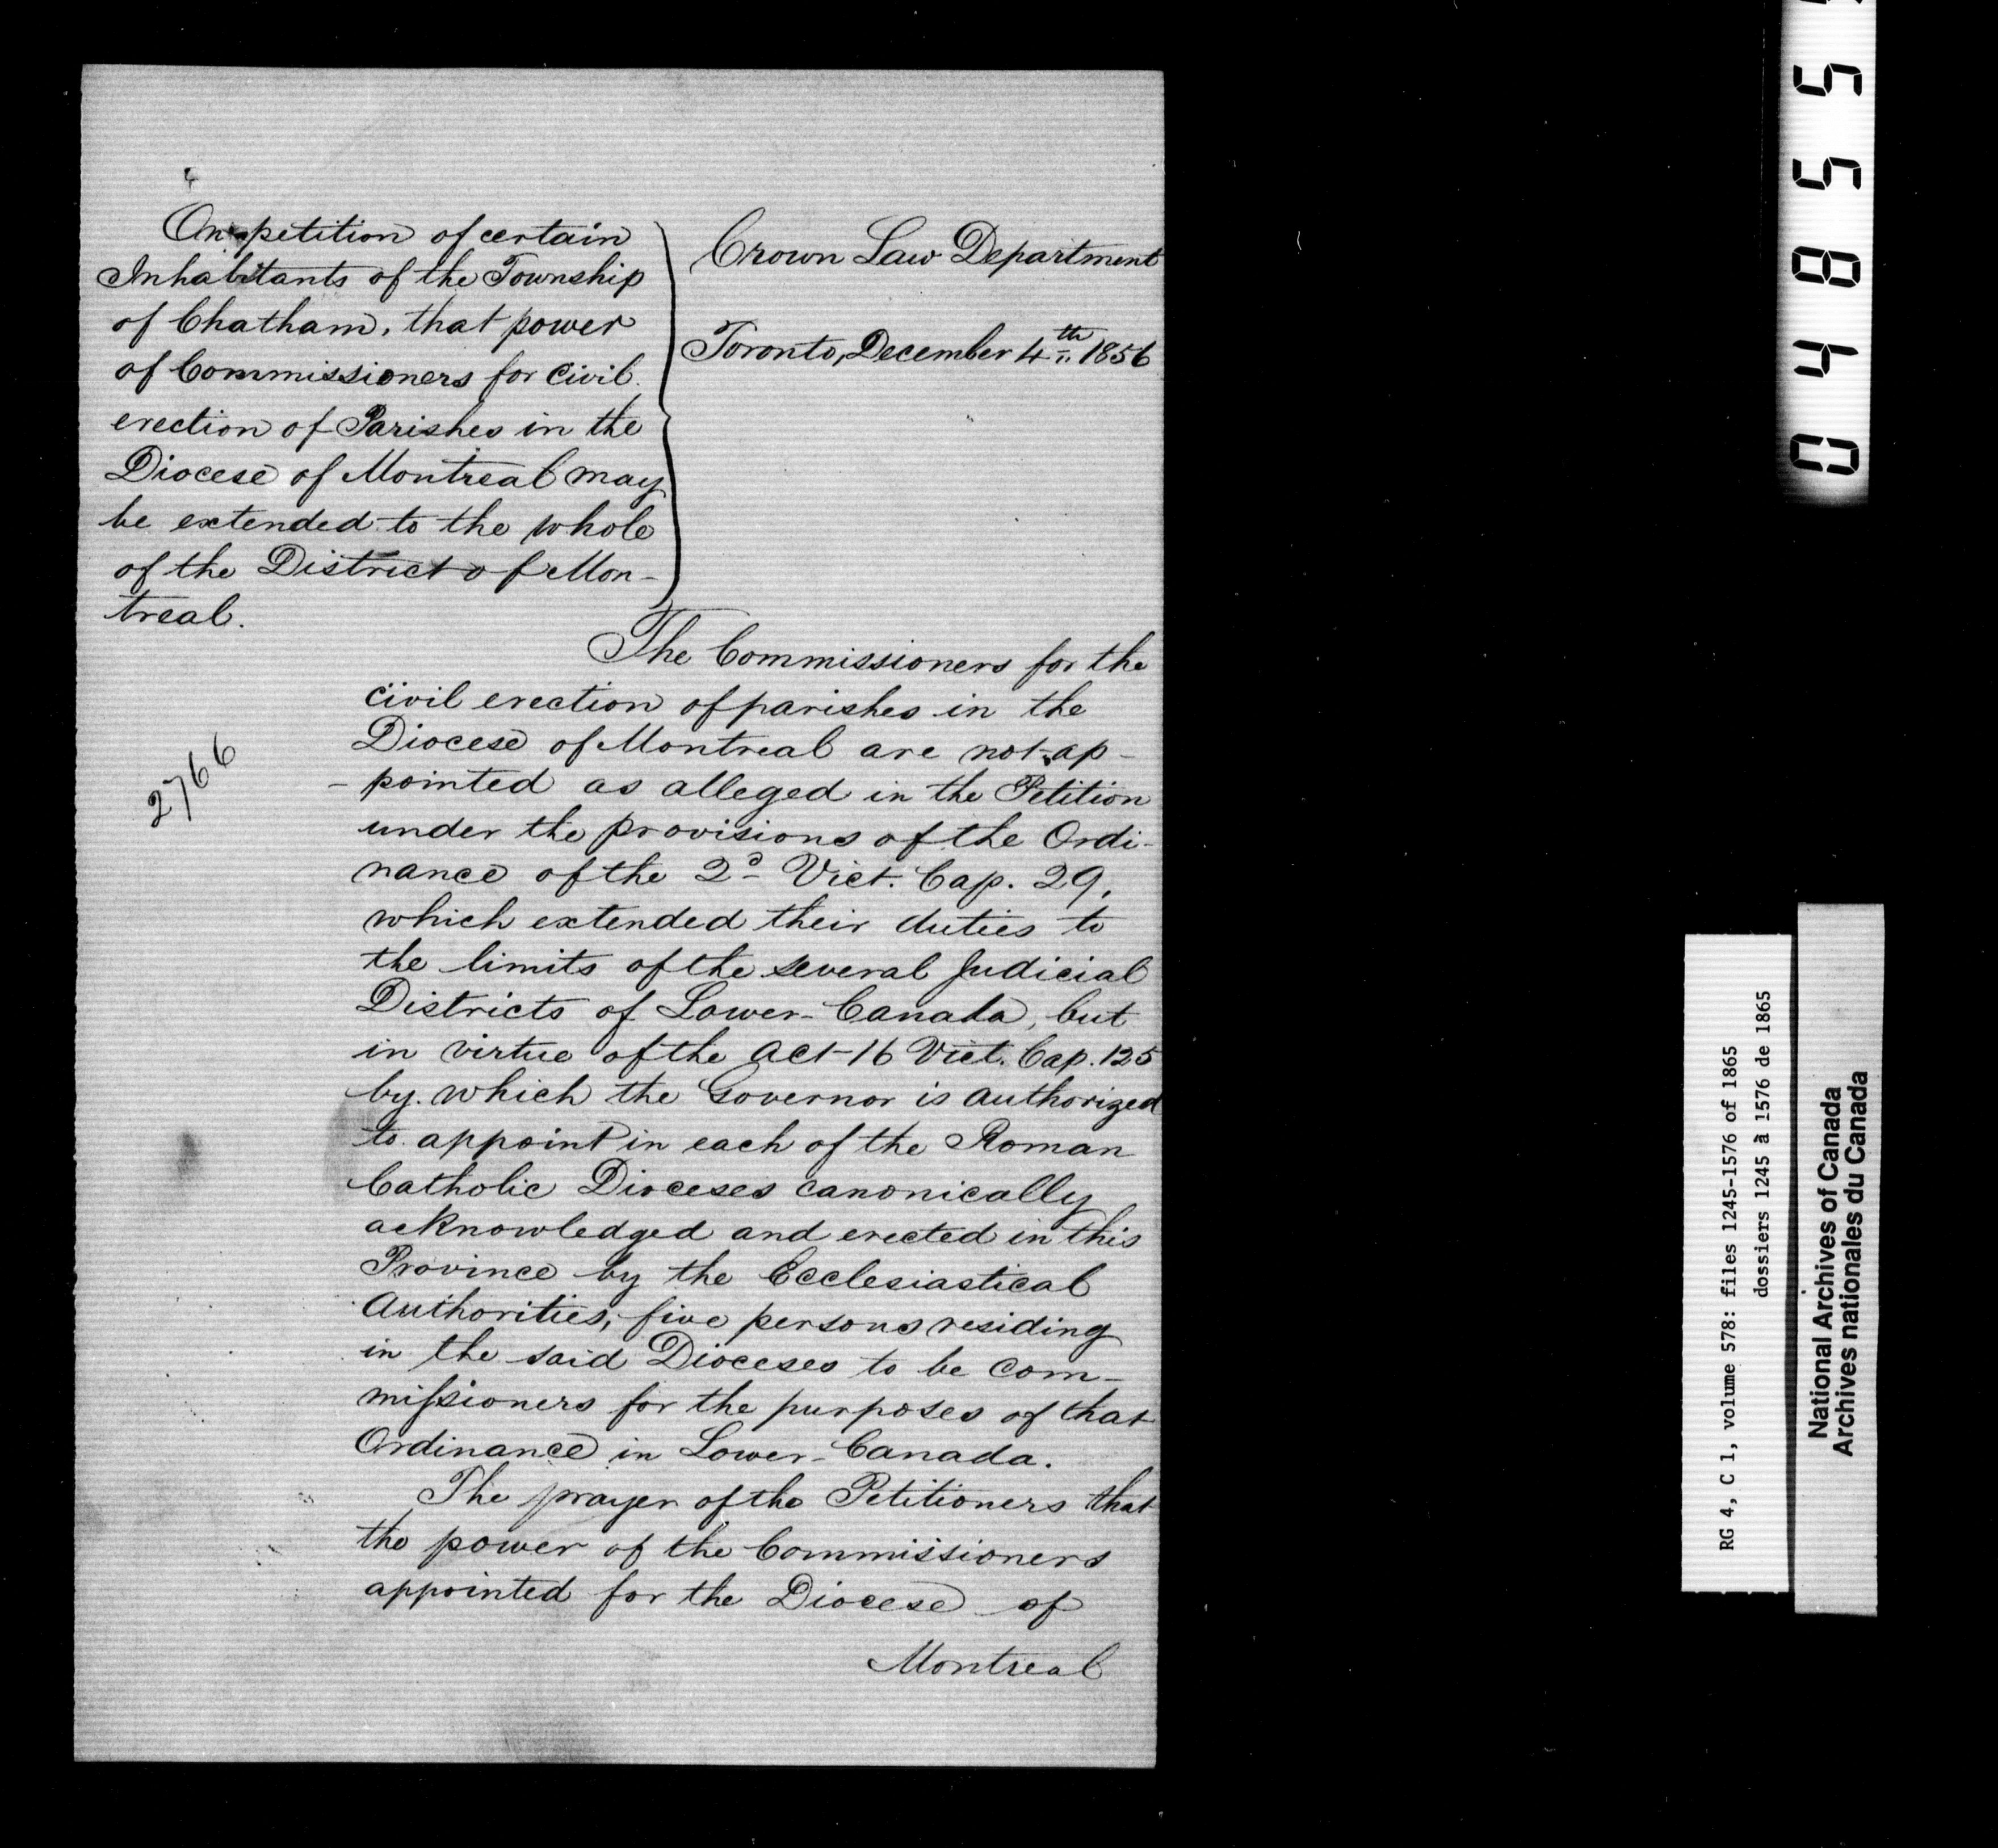 On petition of certain
Inhabitants of the Township
of Chatham, that power
of Commissioners for civil
erection of Parishes in the
Diocese of Montreal may
be extended to the whole
of the District of Mon-
treal.
Crown Law Department
Toronto, December 4th 1856
The Commissioners for the
civil erection of parishes in the
Diocese of Montreal are not ap-
-pointed as alleged in the Petition
under the provisions of the Ordi-
nance of the 2d Vict. Cap. 29,
which extended their duties to
the limits of the several Judicial
Districts of Lower-Canada, but
in virtue of the Act 16 Vict. Cap. 125
by which the Governor is authorized
to appoint in each of the Roman
Catholic Dioceses canonically
acknowledged and erected in this
Province by the Ecclesiastical
Authorities, five persons residing
in the said Dioceses to be Com-
missioners for the purposes of that
Ordinance in Lower-Canada.
The prayer of the Petitioners that
the power of the Commissioners
appointed for the Diocese of
Montreal
2766
RG 4, C 1, volume 578: files 1245-1576 of 1865
dossiers 1245 à 1576 de 1865
National Archives of Canada
Archives nationales du Canada
0 4 8 5 5